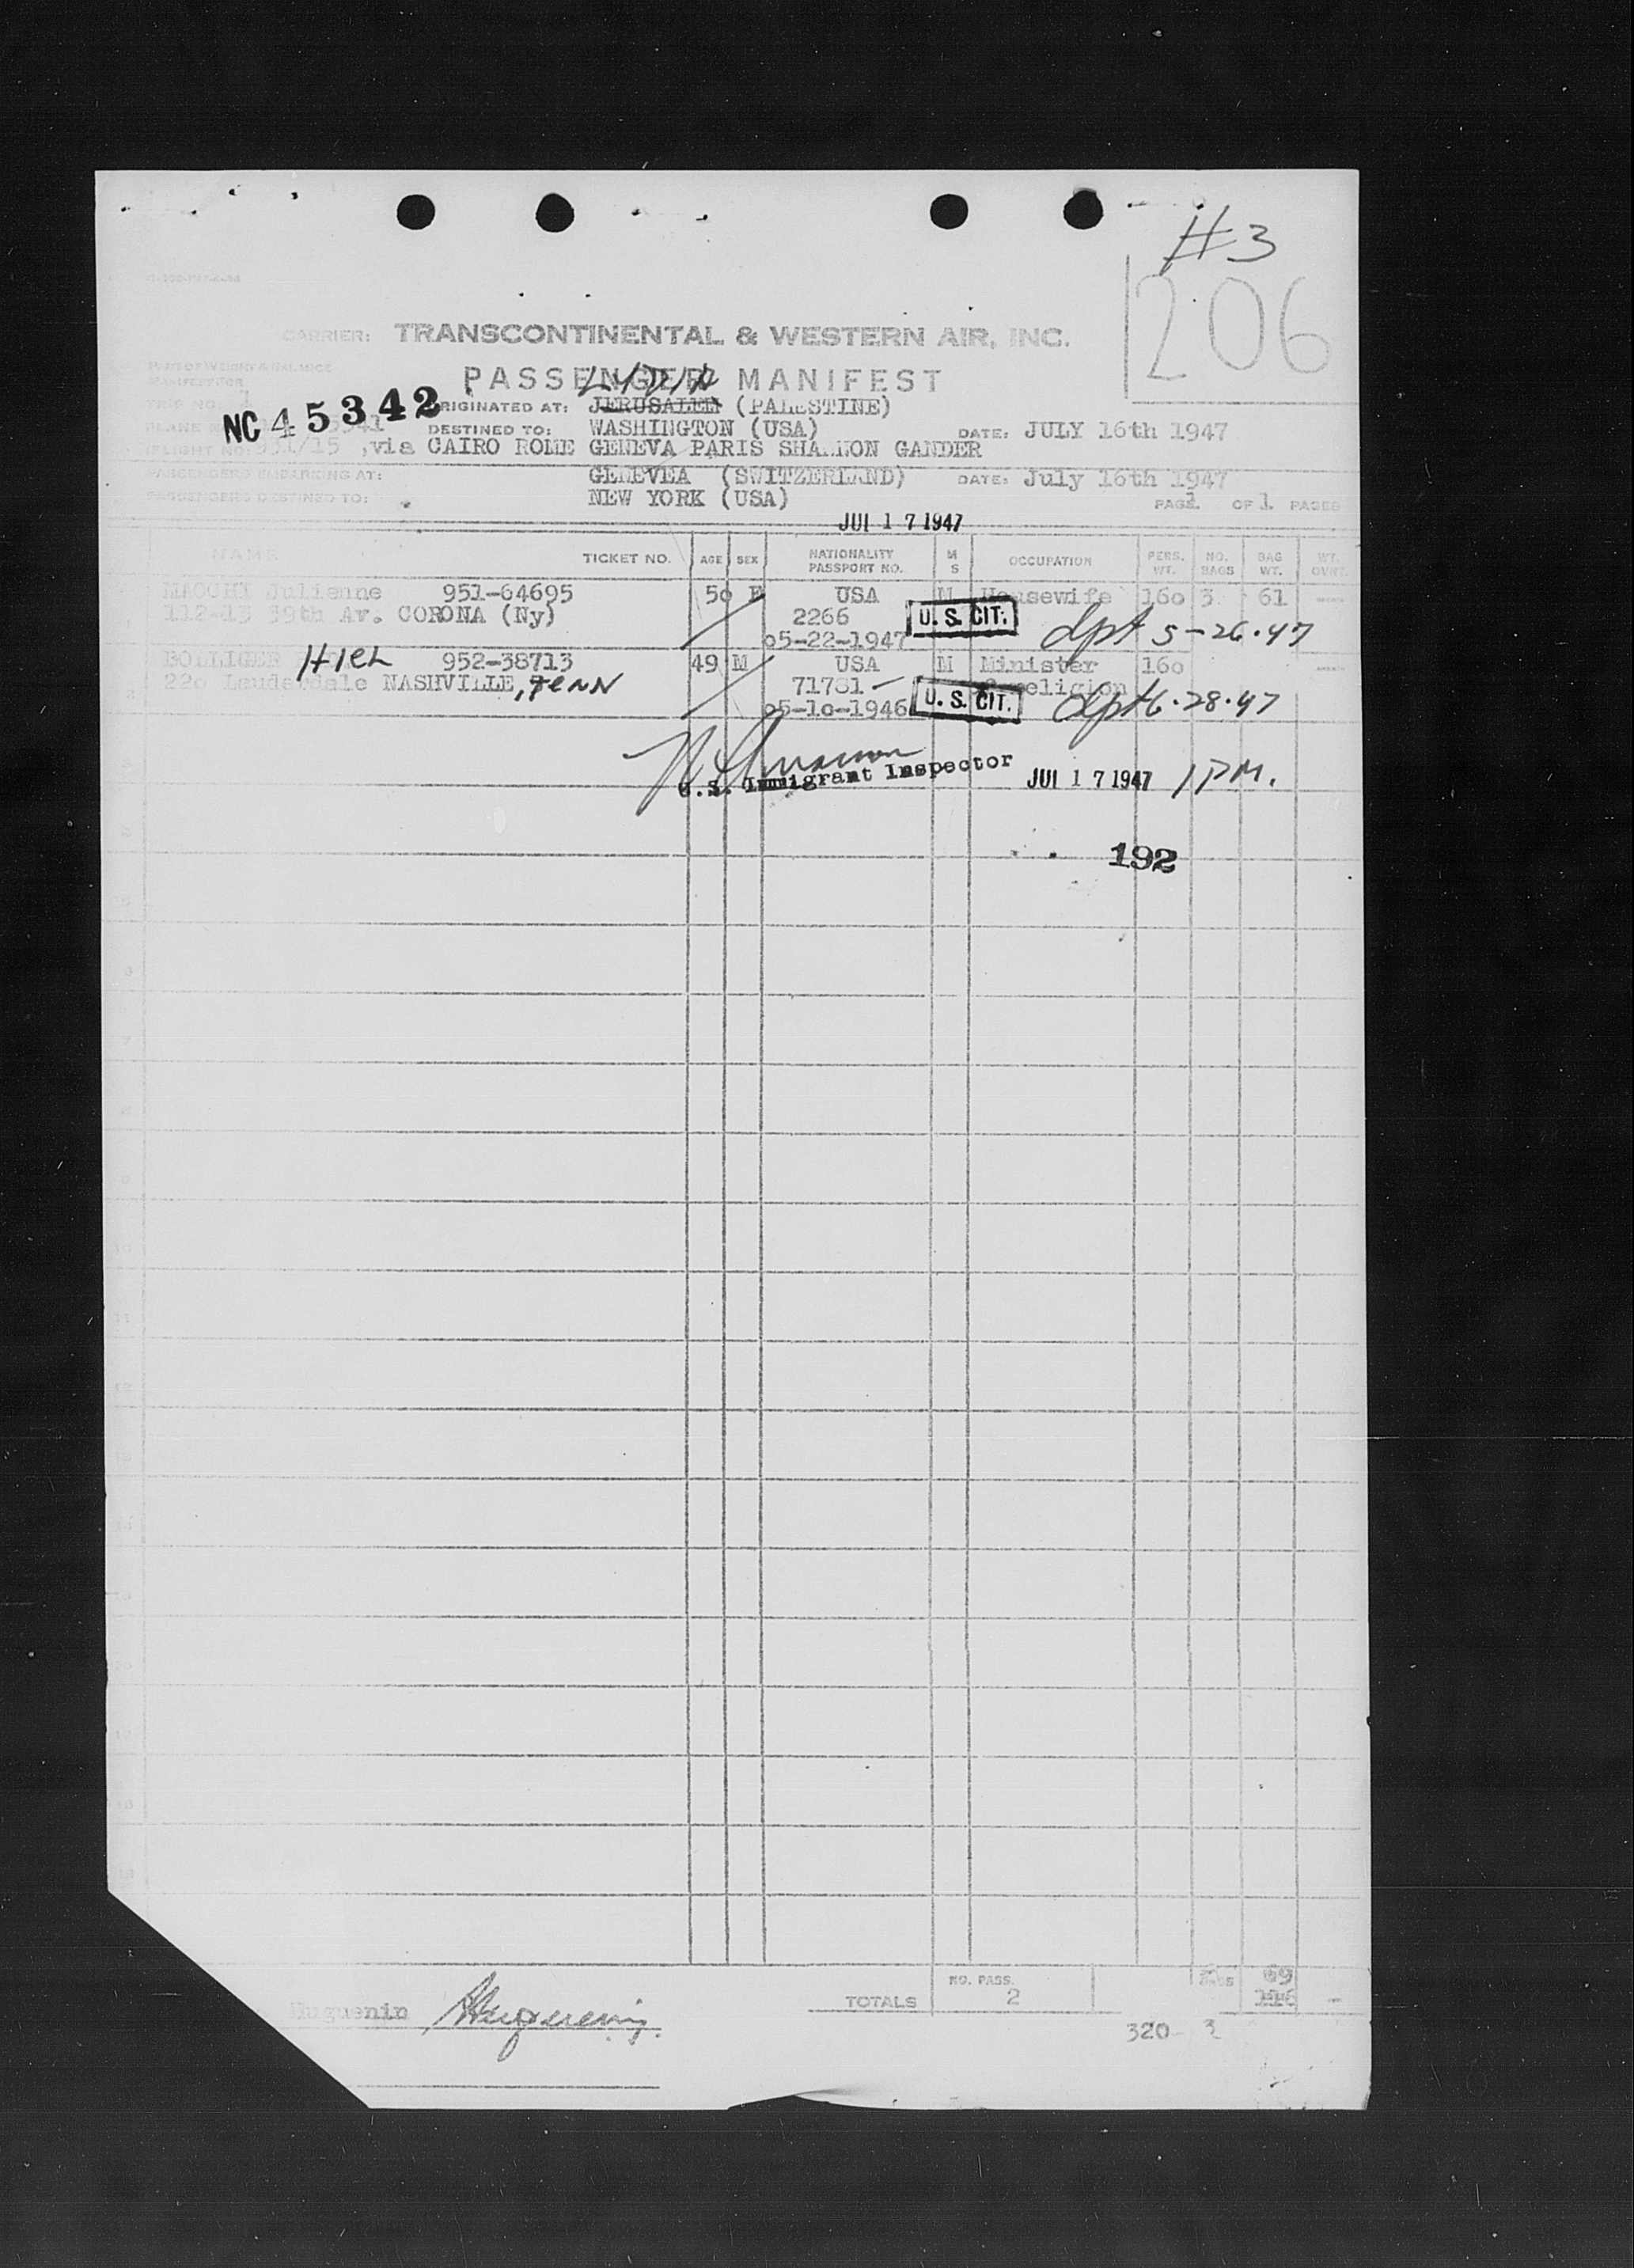 #3
206
CARRIER: TRANSCONTINENTAL & WESTERN AIR, INC.
PASSENGER MANIFEST
LYDDA
NC 45342
ORIGINATED AT: JERUSALEM (PALESTINE)
DESTINED TO: WASHINGTON (USA) DATE: JULY 16th 1947
FLIGHT NO: 951/15 ,via CAIRO ROME GENEVA PARIS SHANNON GANDER
PASSENGERS EMBARKING AT: GENEVEA (SWITZERLAND) DATE: July 16th 1947
PASSENGERS DESTINED TO: NEW YORK (USA) PAGE 1 OF 1 PAGES
JUL 17 1947
NAME TICKET NO. AGE SEX NATIONALITY PASSPORT NO. M S OCCUPATION PERS. WT. NO. BAGS BAG WT. WT. OVRT.
Julienne 951-64695 5o F USA M Housewife 16o 3 61
112-13 39th Av. CORONA (Ny) 2266 U. S. CIT. dpt 5-26-47
o5-22-1947
BOLLIGER 952-38713 49 M USA M Minister 16o
22o Lauderdale NASHVILLE, TeNN 71781 of religion
o5-1o-1946 U. S. CIT. dpt 6-28-47
U.S. Immigrant Inspector JUL 17 1947 1 PM.
192
NO. PASS. BAGS 69
TOTALS 2
Huguenin Huguenin
320 3